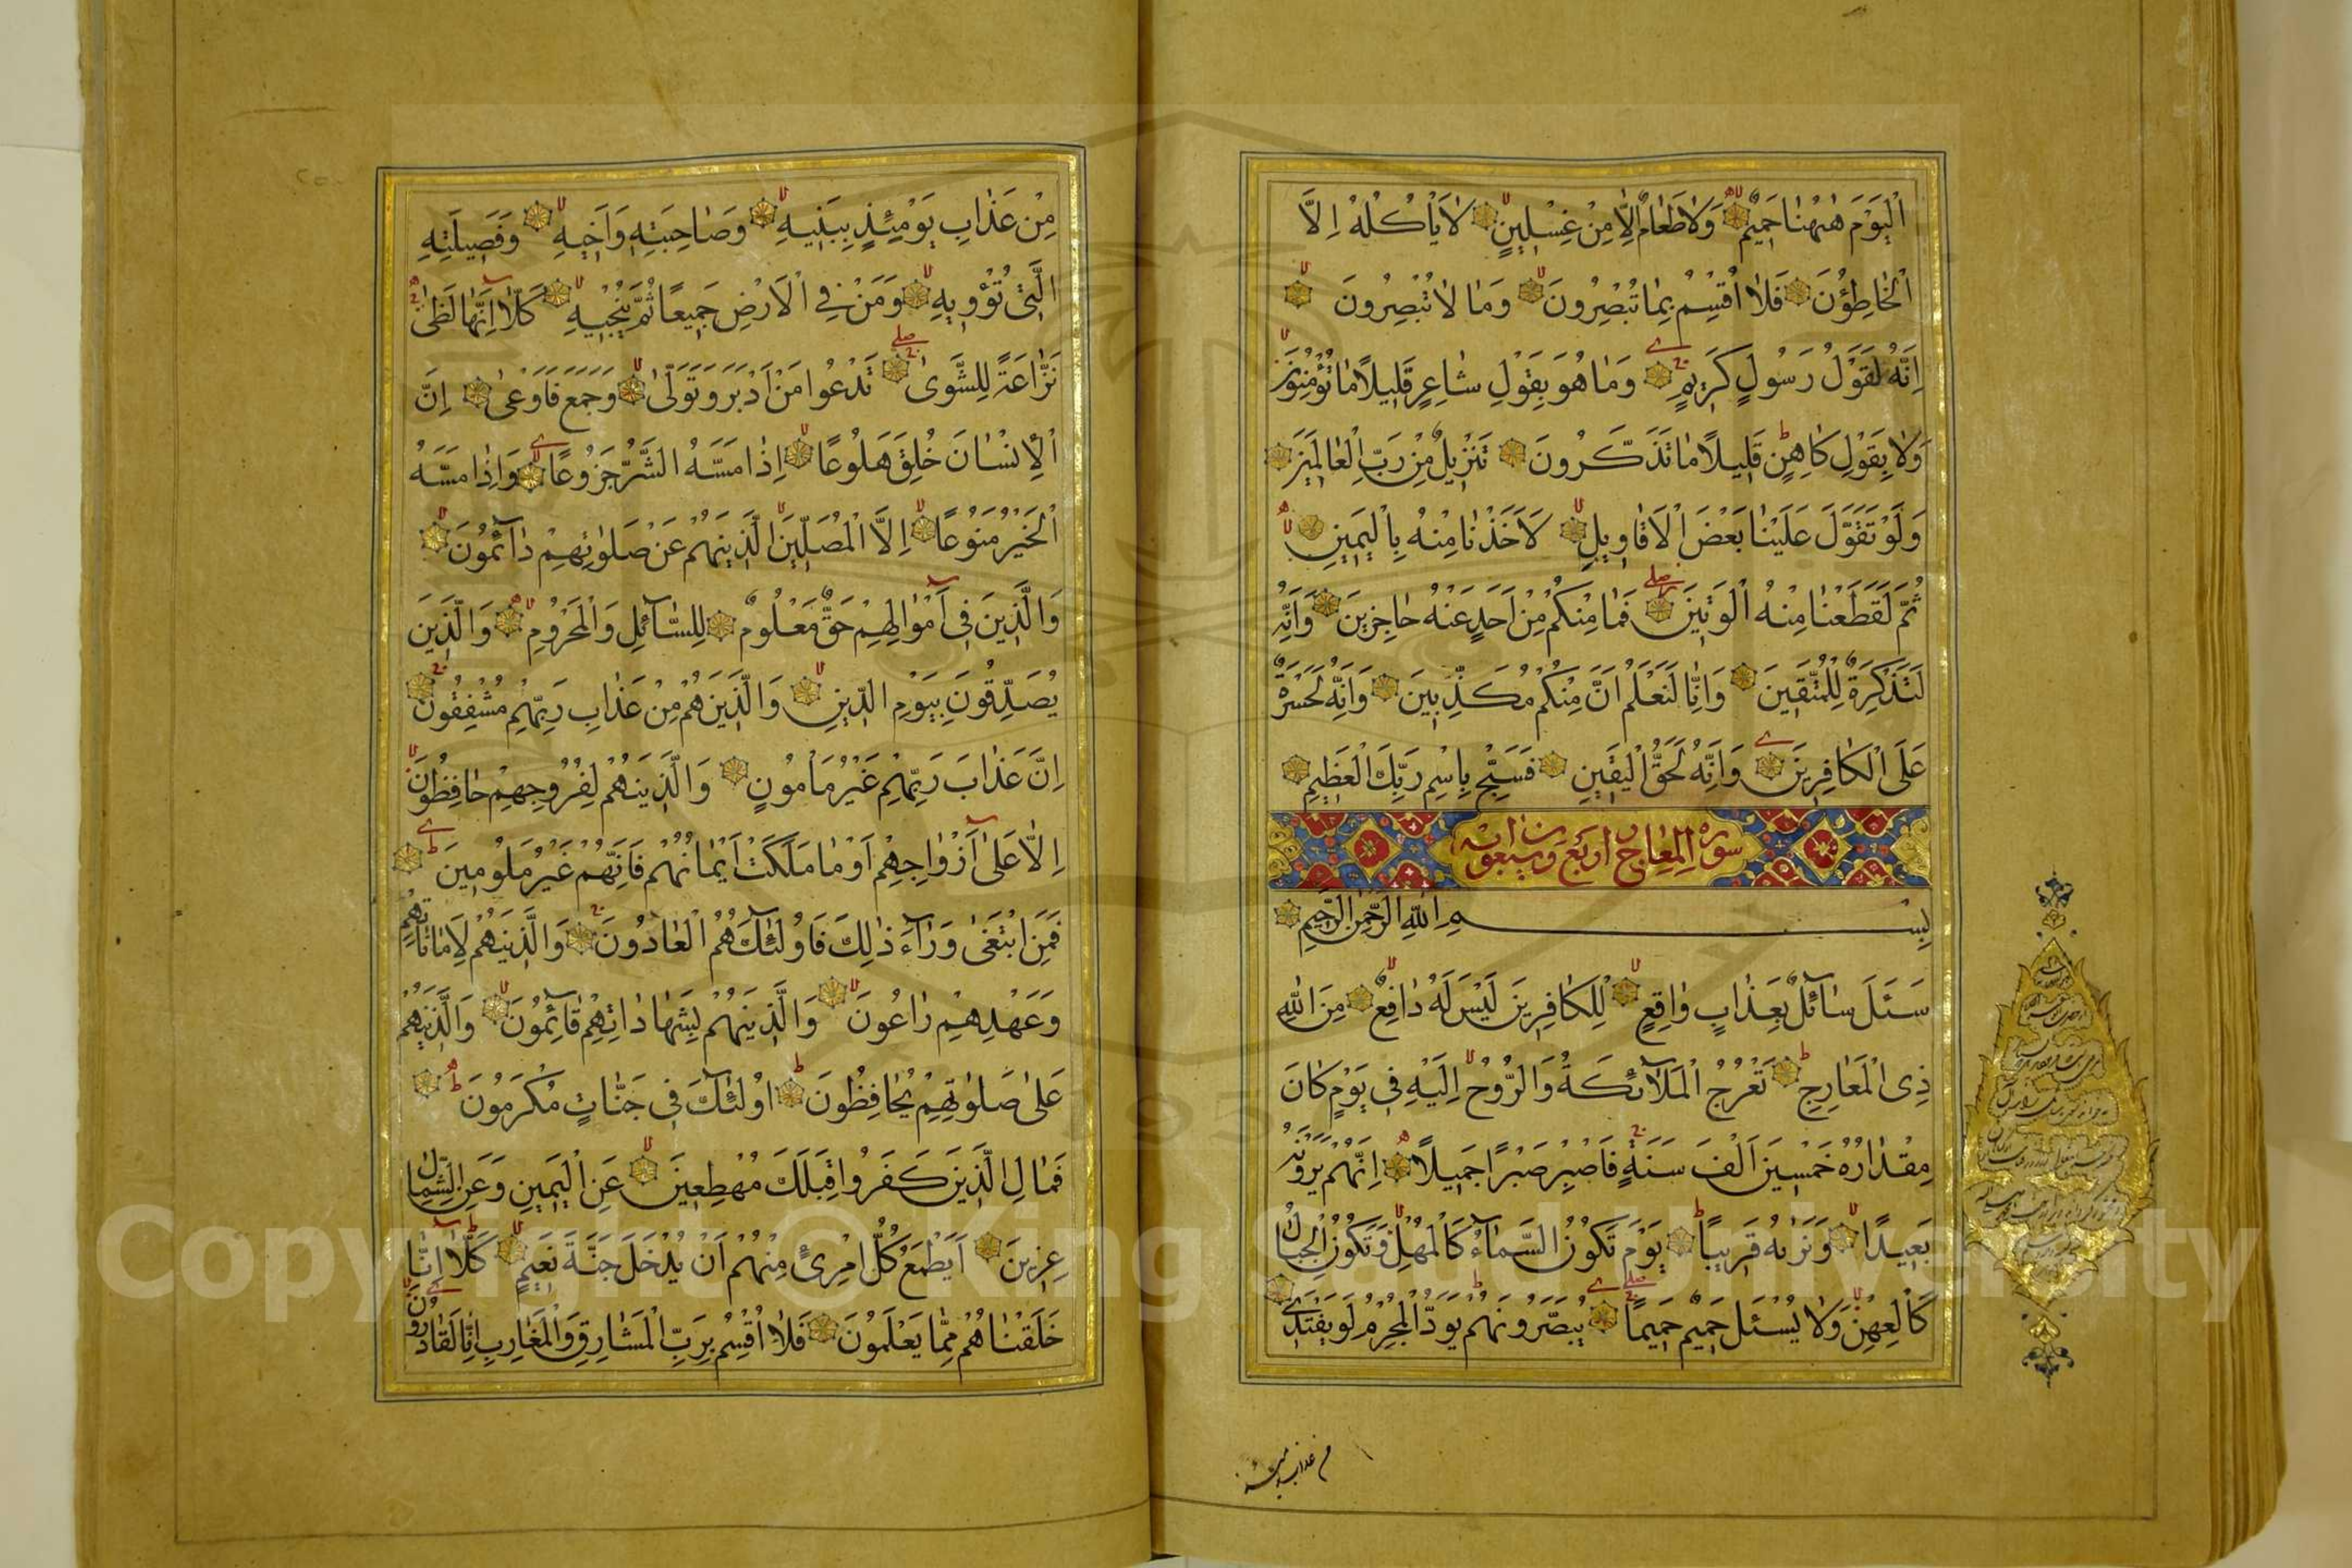 اَلْيَوْمَ هٰهُنٰا حَمِيمٌ وَلٰا طَعٰامٌ اِلّٰا مِنْ غِسْلِينٍ لٰا يَأْكُلُهُ اِلَّا
الْخٰاطِؤُنَ فَلٰا اُقْسِمُ بِمٰا تُبْصِرُونَ وَمٰا لٰا تُبْصِرُونَ
اِنَّهُ لَقَوْلُ رَسُولٍ كَرِيمٍ وَمٰا هُوَ بِقَوْلِ شٰاعِرٍ قَلِيلًا مٰا تُؤْمِنُونَ
وَلٰا بِقَوْلِ كٰاهِنٍ قَلِيلًا مٰا تَذَكَّرُونَ تَنْزِيلٌ مِنْ رَبِّ الْعٰالَمِينَ
وَلَوْ تَقَوَّلَ عَلَيْنٰا بَعْضَ الْاَقٰاوِيلِ لَاَخَذْنٰا مِنْهُ بِالْيَمِينِ
ثُمَّ لَقَطَعْنٰا مِنْهُ الْوَتِينَ فَمٰا مِنْكُمْ مِنْ اَحَدٍ عَنْهُ حٰاجِزِينَ وَاِنَّهُ
لَتَذْكِرَةٌ لِلْمُتَّقِينَ وَاِنّٰا لَنَعْلَمُ اَنَّ مِنْكُمْ مُكَذِّبِينَ وَاِنَّهُ لَحَسْرَةٌ
عَلَى الْكٰافِرِينَ وَاِنَّهُ لَحَقُّ الْيَقِينِ فَسَبِّحْ بِاسْمِ رَبِّكَ الْعَظِيمِ
سورة المعارج اربع وسبعون اية
بِسْمِ اللهِ الرَّحْمٰنِ الرَّحِيمِ
سَئَلَ سٰآئِلٌ بِعَذٰابٍ وٰاقِعٍ لِلْكٰافِرِينَ لَيْسَ لَهُ دٰافِعٌ مِنَ اللهِ
ذِى الْمَعٰارِجِ تَعْرُجُ الْمَلٰآئِكَةُ وَالرُّوحُ اِلَيْهِ فِى يَوْمٍ كٰانَ
مِقْدٰارُهُ خَمْسِينَ اَلْفَ سَنَةٍ فَاصْبِرْ صَبْرًا جَمِيلًا اِنَّهُمْ يَرَوْنَهُ
بَعِيدًا وَنَرٰيهُ قَرِيبًا يَوْمَ تَكُونُ السَّمٰآءُ كَالْمُهْلِ وَتَكُونُ الْجِبٰالُ
كَالْعِهْنِ وَلٰا يُسْئَلُ حَمِيمٌ حَمِيمًا يُبَصَّرُونَهُمْ يَوَدُّ الْمُجْرِمُ لَوْ يَفْتَدِى
من عذاب يومئذ
مِنْ عَذٰابِ يَوْمِئِذٍ بِبَنِيهِ وَصٰاحِبَتِهِ وَاَخِيهِ وَفَصِيلَتِهِ
الَّتِى تُؤْوِيهِ وَمَنْ فِى الْاَرْضِ جَمِيعًا ثُمَّ يُنْجِيهِ كَلّٰا اِنَّهٰا لَظٰى
نَزّٰاعَةً لِلشَّوٰى تَدْعُوا مَنْ اَدْبَرَ وَتَوَلّٰى وَجَمَعَ فَاَوْعٰى اِنَّ
الْاِنْسٰانَ خُلِقَ هَلُوعًا اِذٰا مَسَّهُ الشَّرُّ جَزُوعًا وَاِذٰا مَسَّهُ
الْخَيْرُ مَنُوعًا اِلَّا الْمُصَلِّينَ الَّذِينَ هُمْ عَنْ صَلٰوتِهِمْ دٰآئِمُونَ
وَالَّذِينَ فِى اَمْوٰالِهِمْ حَقٌّ مَعْلُومٌ لِلسّٰآئِلِ وَالْمَحْرُومِ وَالَّذِينَ
يُصَدِّقُونَ بِيَوْمِ الدِّينِ وَالَّذِينَ هُمْ مِنْ عَذٰابِ رَبِّهِمْ مُشْفِقُونَ
اِنَّ عَذٰابَ رَبِّهِمْ غَيْرُ مَأْمُونٍ وَالَّذِينَ هُمْ لِفُرُوجِهِمْ حٰافِظُونَ
اِلّٰا عَلٰى اَزْوٰاجِهِمْ اَوْ مٰا مَلَكَتْ اَيْمٰانُهُمْ فَاِنَّهُمْ غَيْرُ مَلُومِينَ
فَمَنِ ابْتَغٰى وَرٰآءَ ذٰلِكَ فَاُولٰئِكَ هُمُ الْعٰادُونَ وَالَّذِينَ هُمْ لِاَمٰانٰاتِهِمْ
وَعَهْدِهِمْ رٰاعُونَ وَالَّذِينَ هُمْ بِشَهٰادٰاتِهِمْ قٰآئِمُونَ وَالَّذِينَ هُمْ
عَلٰى صَلٰوتِهِمْ يُحٰافِظُونَ اُولٰئِكَ فِى جَنّٰاتٍ مُكْرَمُونَ
فَمٰالِ الَّذِينَ كَفَرُوا قِبَلَكَ مُهْطِعِينَ عَنِ الْيَمِينِ وَعَنِ الشِّمٰالِ
عِزِينَ اَيَطْمَعُ كُلُّ امْرِئٍ مِنْهُمْ اَنْ يُدْخَلَ جَنَّةَ نَعِيمٍ كَلّٰا اِنّٰا
خَلَقْنٰاهُمْ مِمّٰا يَعْلَمُونَ فَلٰا اُقْسِمُ بِرَبِّ الْمَشٰارِقِ وَالْمَغٰارِبِ اِنّٰا لَقٰادِرُونَ
Copyright © King Saud University